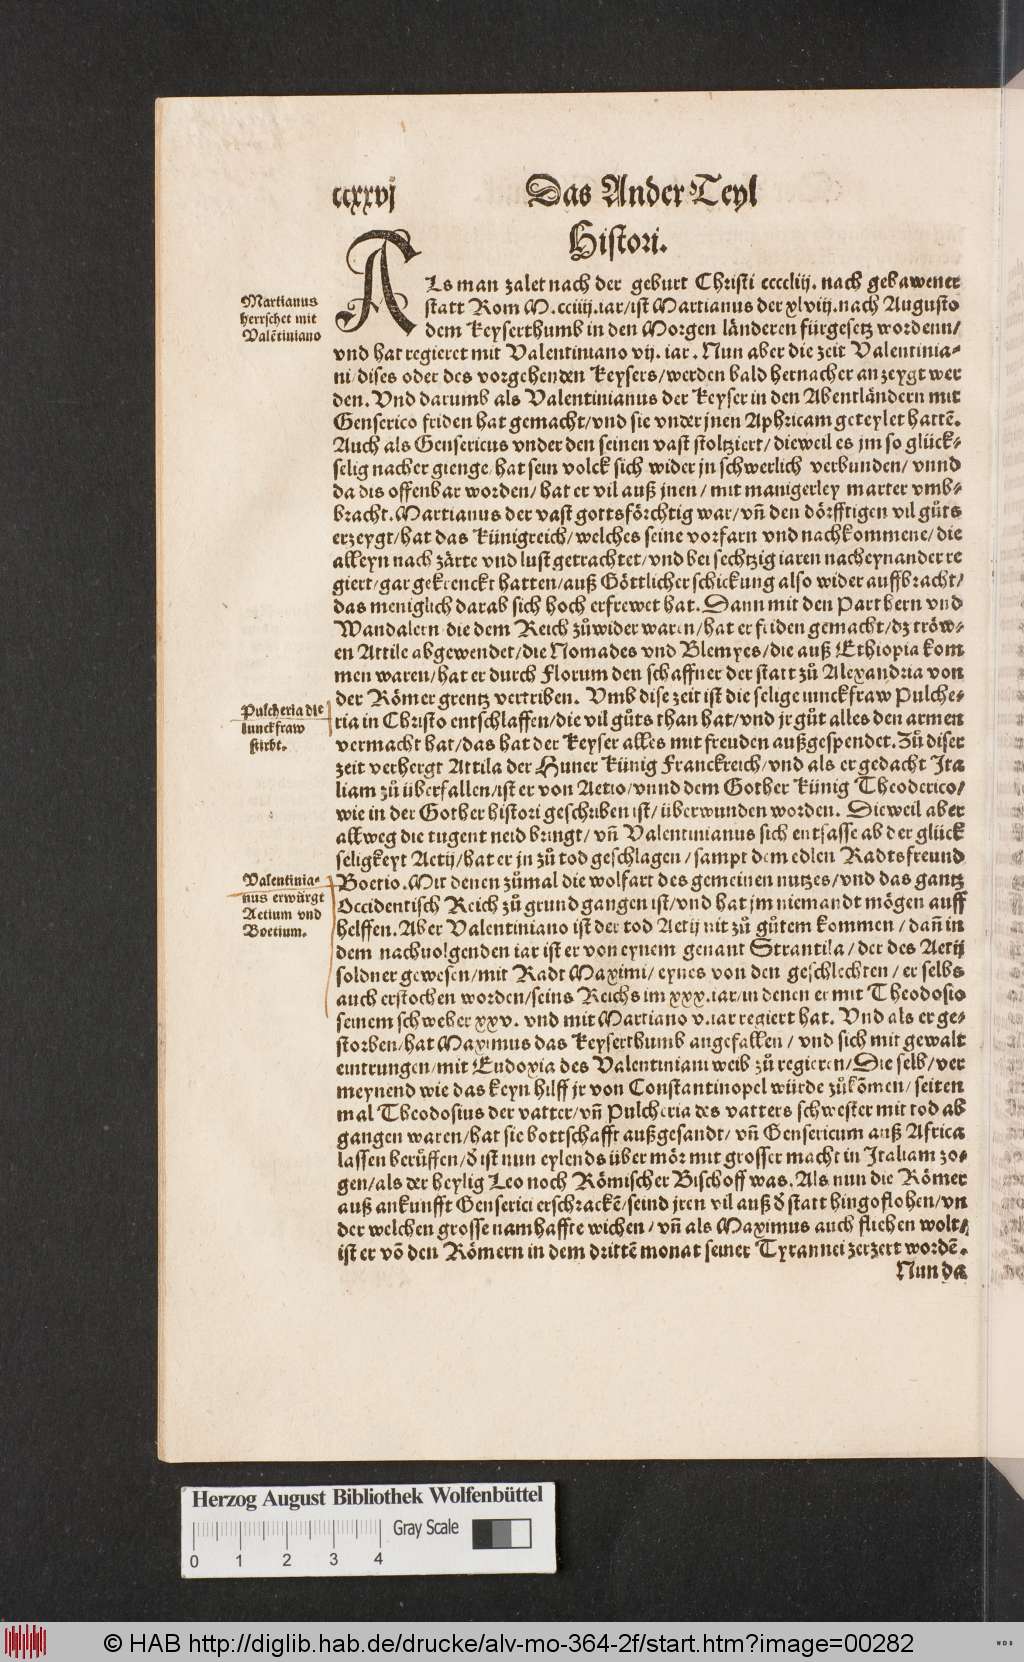 ccxxvj
Das Ander Teyl
Histori.
Martianus
herrschet mit
Valētiniano
ALs man zalet nach der geburt Christi ccccliij. nach gebawener
statt Rom M.cciiij.iar/ist Martianus der xlviij.nach Augusto
dem Keyserthumb in den Morgen länderen fürgesetz wordenn/
vnd hat regieret mit Valentiniano vij. iar. Nun aber die zeit Valentinia-
ni/dises oder des vorgehenden Keysers/werden bald hernacher anzeygt wer
den. Vnd darumb als Valentinianus der Keyser in den Abentländern mit
Genserico friden hat gemacht/vnd sie vnder jnen Aphricam geteylet hattē.
Auch als Gensericus vnder den seinen vast stoltziert/dieweil es jm so glück-
selig nacher gienge/hat sein volck sich wider jn schwerlich verbunden/vnnd
da dis offenbar worden/hat er vil auß jnen/mit manigerley marter vmb-
bracht. Martianus der vast gottsförchtig war/vñ den dörfftigen vil gůts
erzeygt/hat das Künigreich/welches seine vorfarn vnd nachkommene/die
alleyn nach zärte vnd lust getrachtet/vnd bei sechtzig iaren nacheynander re
giert/gar gekrenckt hatten/auß Göttlicher schickung also wider auffbracht/
das meniglich darab sich hoch erfrewet hat. Dann mit den Parthern vnd
Wandalern die dem Reich zůwider waren/hat er friden gemacht/dz tröw-
en Attile abgewendet/die Nomades vnd Blemyes/die auß Ethiopia kom
men waren/hat er durch Florum den schaffner der statt zů Alexandria von
der Römer grentz vertriben. Vmb dise zeit ist die selige iunckfraw Pulche-
ria in Christo entschlaffen/die vil gůts than hat/vnd jr gůt alles den armen
vermacht hat/das hat der Keyser alles mit freuden außgespendet. Zů diser
zeit verhergt Attila der Huner Künig Franckreich/vnd als er gedacht Ita
liam zů überfallen/ist er von Aetio/vnnd dem Gother Künig Theoderico/
wie in der Gother histori geschriben ist/überwunden worden. Dieweil aber
allweg die tugent neid bringt/vñ Valentinianus sich entsasse ab der glück
seligkeyt Aetij/hat er jn zů tod geschlagen/sampt dem edlen Radtsfreund
Boetio. Mit denen zůmal die wolfart des gemeinen nutzes/vnd das gantz
Occidentisch Reich zů grund gangen ist/vnd hat jm niemandt mögen auff
helffen. Aber Valentiniano ist der tod Aetij nit zů gůtem kommen/dañ in
dem nachuolgenden iar ist er von eynem genant Strantila/der des Aetij
soldner gewesen/mit Radt Maximi/eynes von den geschlechten/er selbs
auch erstochen worden/seins Reichs im xxx.iar/in denen er mit Theodosio
seinem schweher xxv. vnd mit Martiano v.iar regiert hat. Vnd als er ge-
storben/hat Maximus das Keyserthumb angefallen/vnd sich mit gewalt
eintrungen/mit Eudoxia des Valentiniani weib zů regieren/Die selb/ver
meynend wie das keyn hilff jr von Constantinopel würde zůkōmen/seiten
mal Theodosius der vatter/vñ Pulcheria des vatters schwester mit tod ab
gangen waren/hat sie bottschafft außgesandt/vñ Gensericum auß Africa
lassen berůffen/d' ist nun eylends über mör mit grosser macht in Italiam zo-
gen/als der heylig Leo noch Römischer Bischoff was. Als nun die Römer
auß ankunfft Genserici erschrackē/seind jren vil auß d' statt hingeflohen/vn
der welchen grosse namhaffte wichen/vñ als Maximus auch fliehen wolt/
ist er vō den Römern in dem drittē monat seiner Tyrannei zerzert wordē.
Nun da
Pulcheria die
iunckfraw
stirbt.
Valentinia-
nus erwürgt
Aetium vnd
Boetium.
Herzog August Bibliothek Wolfenbüttel
Gray Scale
0 1 2 3 4
© HAB http://diglib.hab.de/drucke/alv-mo-364-2f/start.htm?image=00282